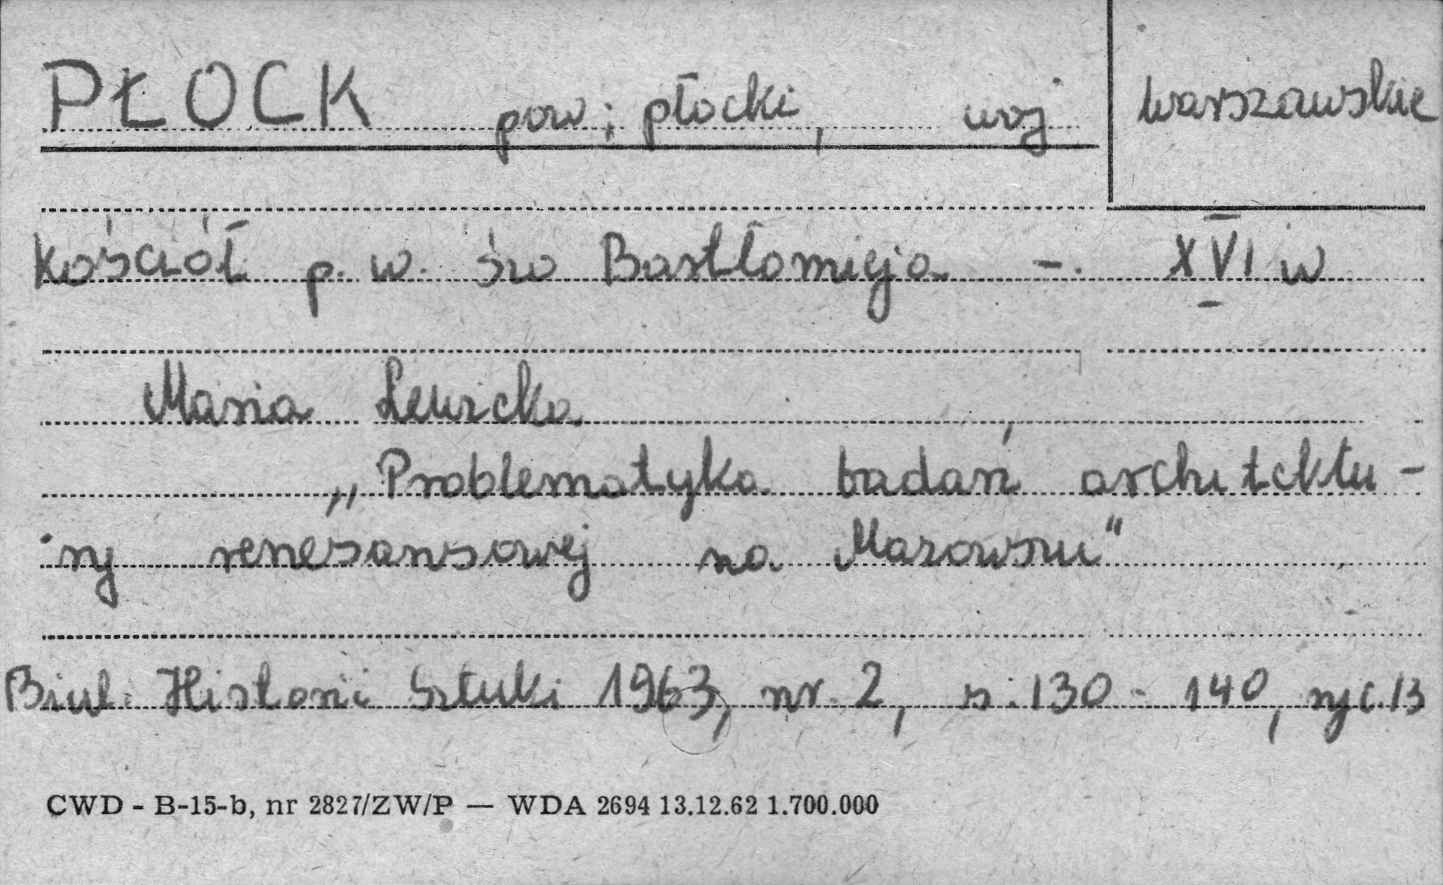 PŁOCK pow; płocki, woj warszawskie
Kościół p. w. św Bartłomieja - XVI w
Maria Lewicka
„Problematyka badań architektu-
ry renesansowej na Mazowszu"
Biul. Historii Sztuki 1963, nr. 2, s. 130 - 140, ryc. 13
CWD - B-15-b, nr 2827/ZW/P — WDA 2694 13.12.62 1.700.000